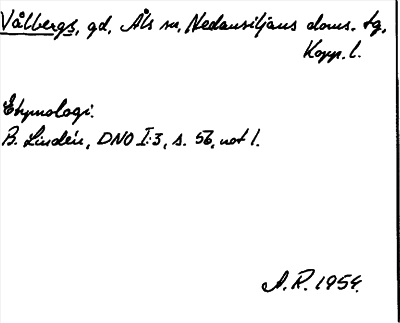 Vålbergs, gd, Åls sn, Nedansiljans doms. tg,
Kopp. l.
Etymologi.
B. Lindén, DNO I:3, s. 56, not 1.
A. R. 1954.